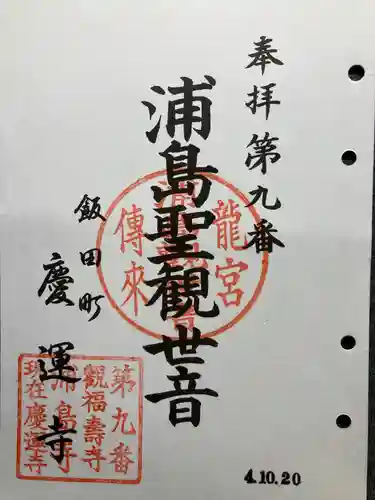 奉拝第九番
浦島聖観世音
飯田町
慶運寺
龍宮
傳來
第九番
觀福壽寺
浦島寺
現在慶運寺
4.10.20